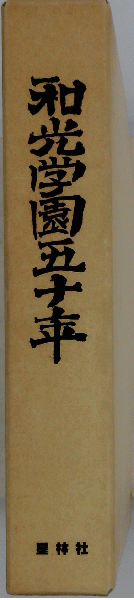 和光学園五十年
星林社